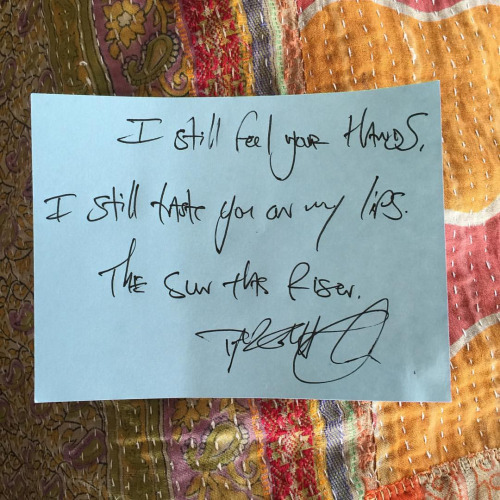 I still feel your HANDS.
I still taste you on my lips.
THE SUN HAS RISEN.